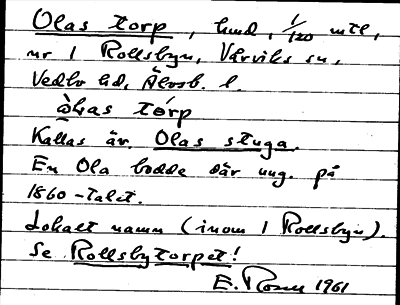 Olas torp, hmd, 1/120 mtl,
nr 1 Rollsbyn, Vårviks sn,
Vedbo hd, Älvsb. l.
òlas tórp
Kallas äv. Olas stuga.
En Ola bodde där ung. på
1860-talet.
Lokalt namn (inom 1 Rollsbyn).
Se Rollsbytorpet!
E. Rosen 1961